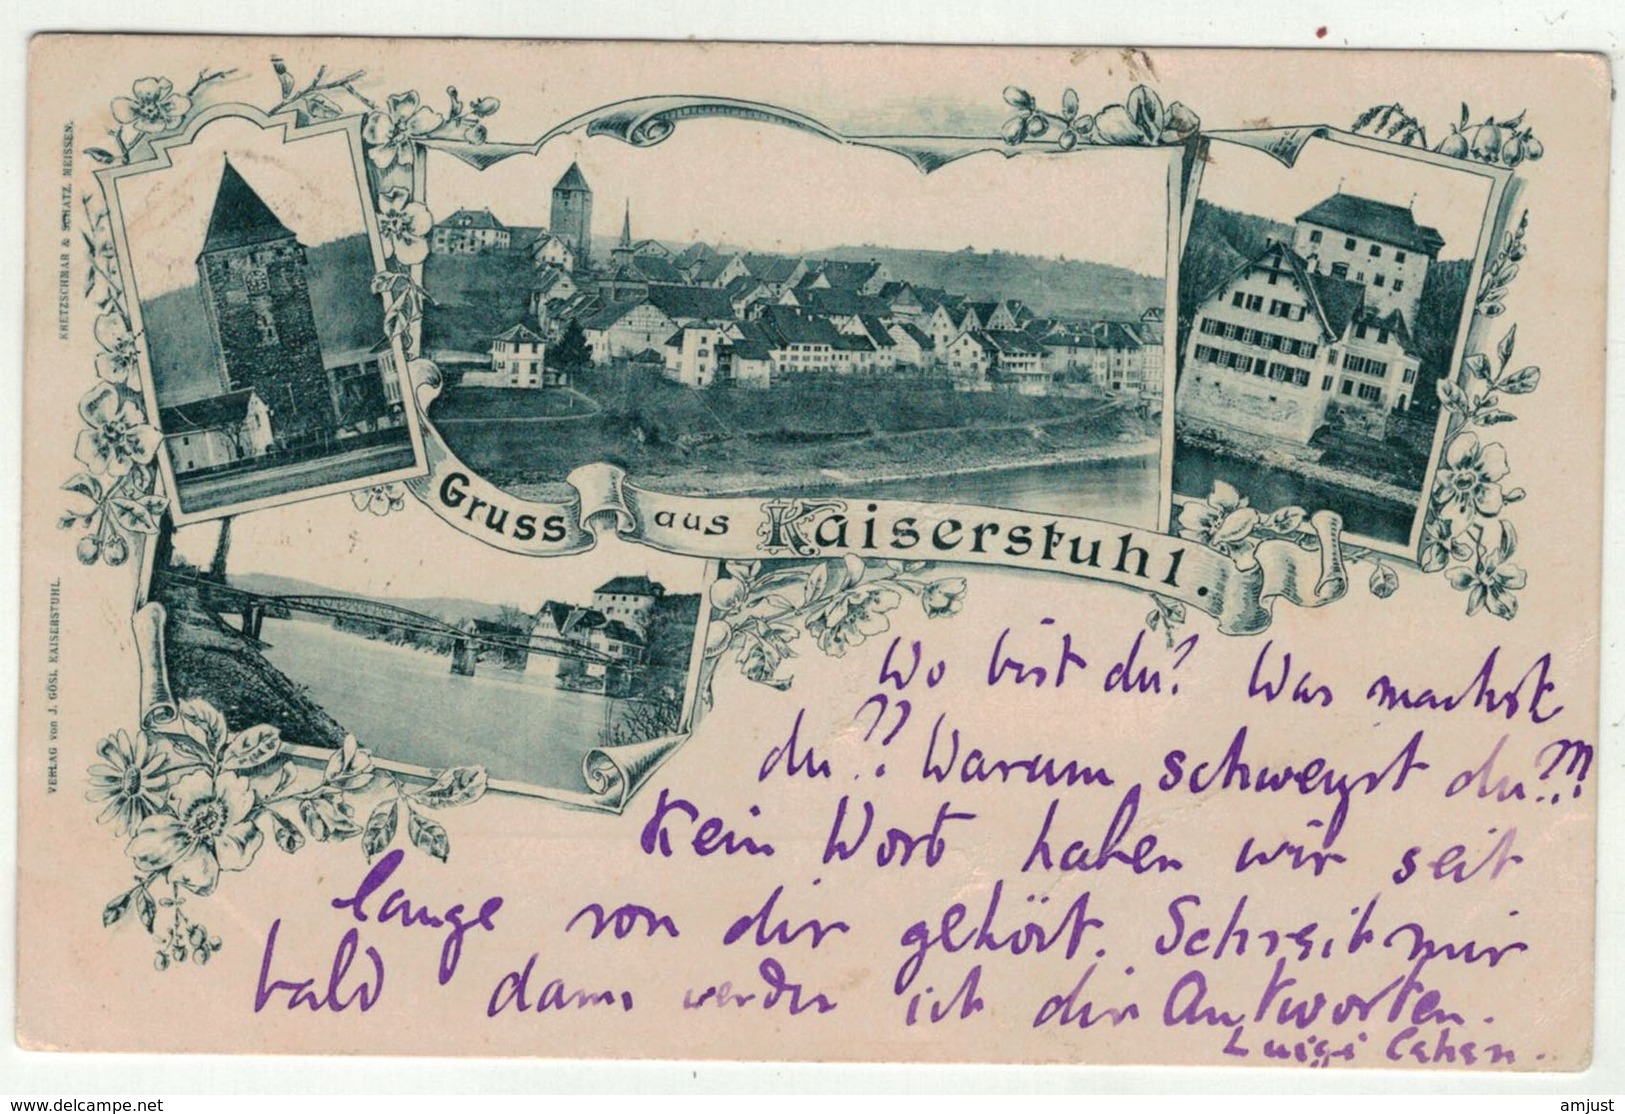 KRETZSCHMAR & SCHATZ. MEISSEN.
VERLAG von J. GÖSI, KAISERSTUHL.
Gruss aus Kaiserstuhl.
Wo bist du? Was machst
du?? Warum schweigst du???
Kein Wort haben wir seit
lange von dir gehört. Schreib mir
bald dann werde ich dir Antworten.
Luigi Cahen.
delcampe.net
amjust